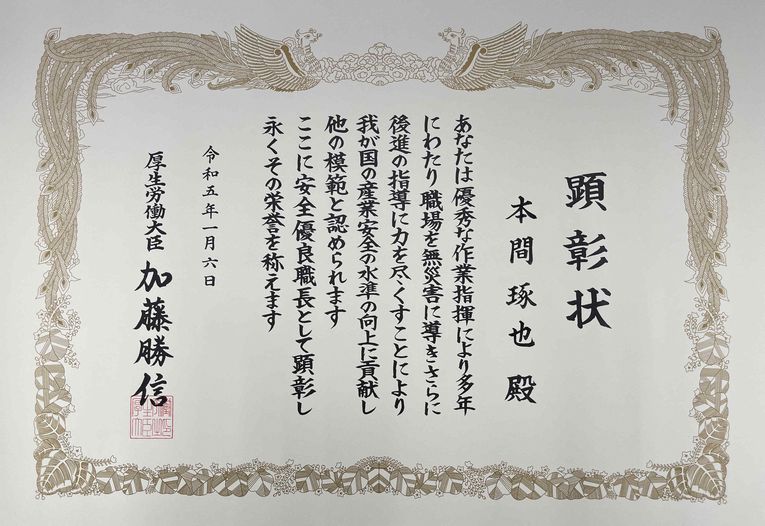 顕彰状
本間琢也殿
あなたは優秀な作業指揮により多年
にわたり職場を無災害に導きさらに
後進の指導に力を尽くすことにより
我が国の産業安全の水準の向上に貢献し
他の模範と認められます
ここに安全優良職長として顕彰し
永くその栄誉を称えます
令和五年一月六日
厚生労働大臣 加藤勝信